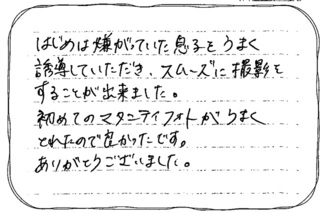 はじめは嫌がっていた息子をうまく
誘導していただき、スムーズに撮影を
することが出来ました。
初めてのマタニティフォトがうまく
とれたので良かったです。
ありがとうございました。